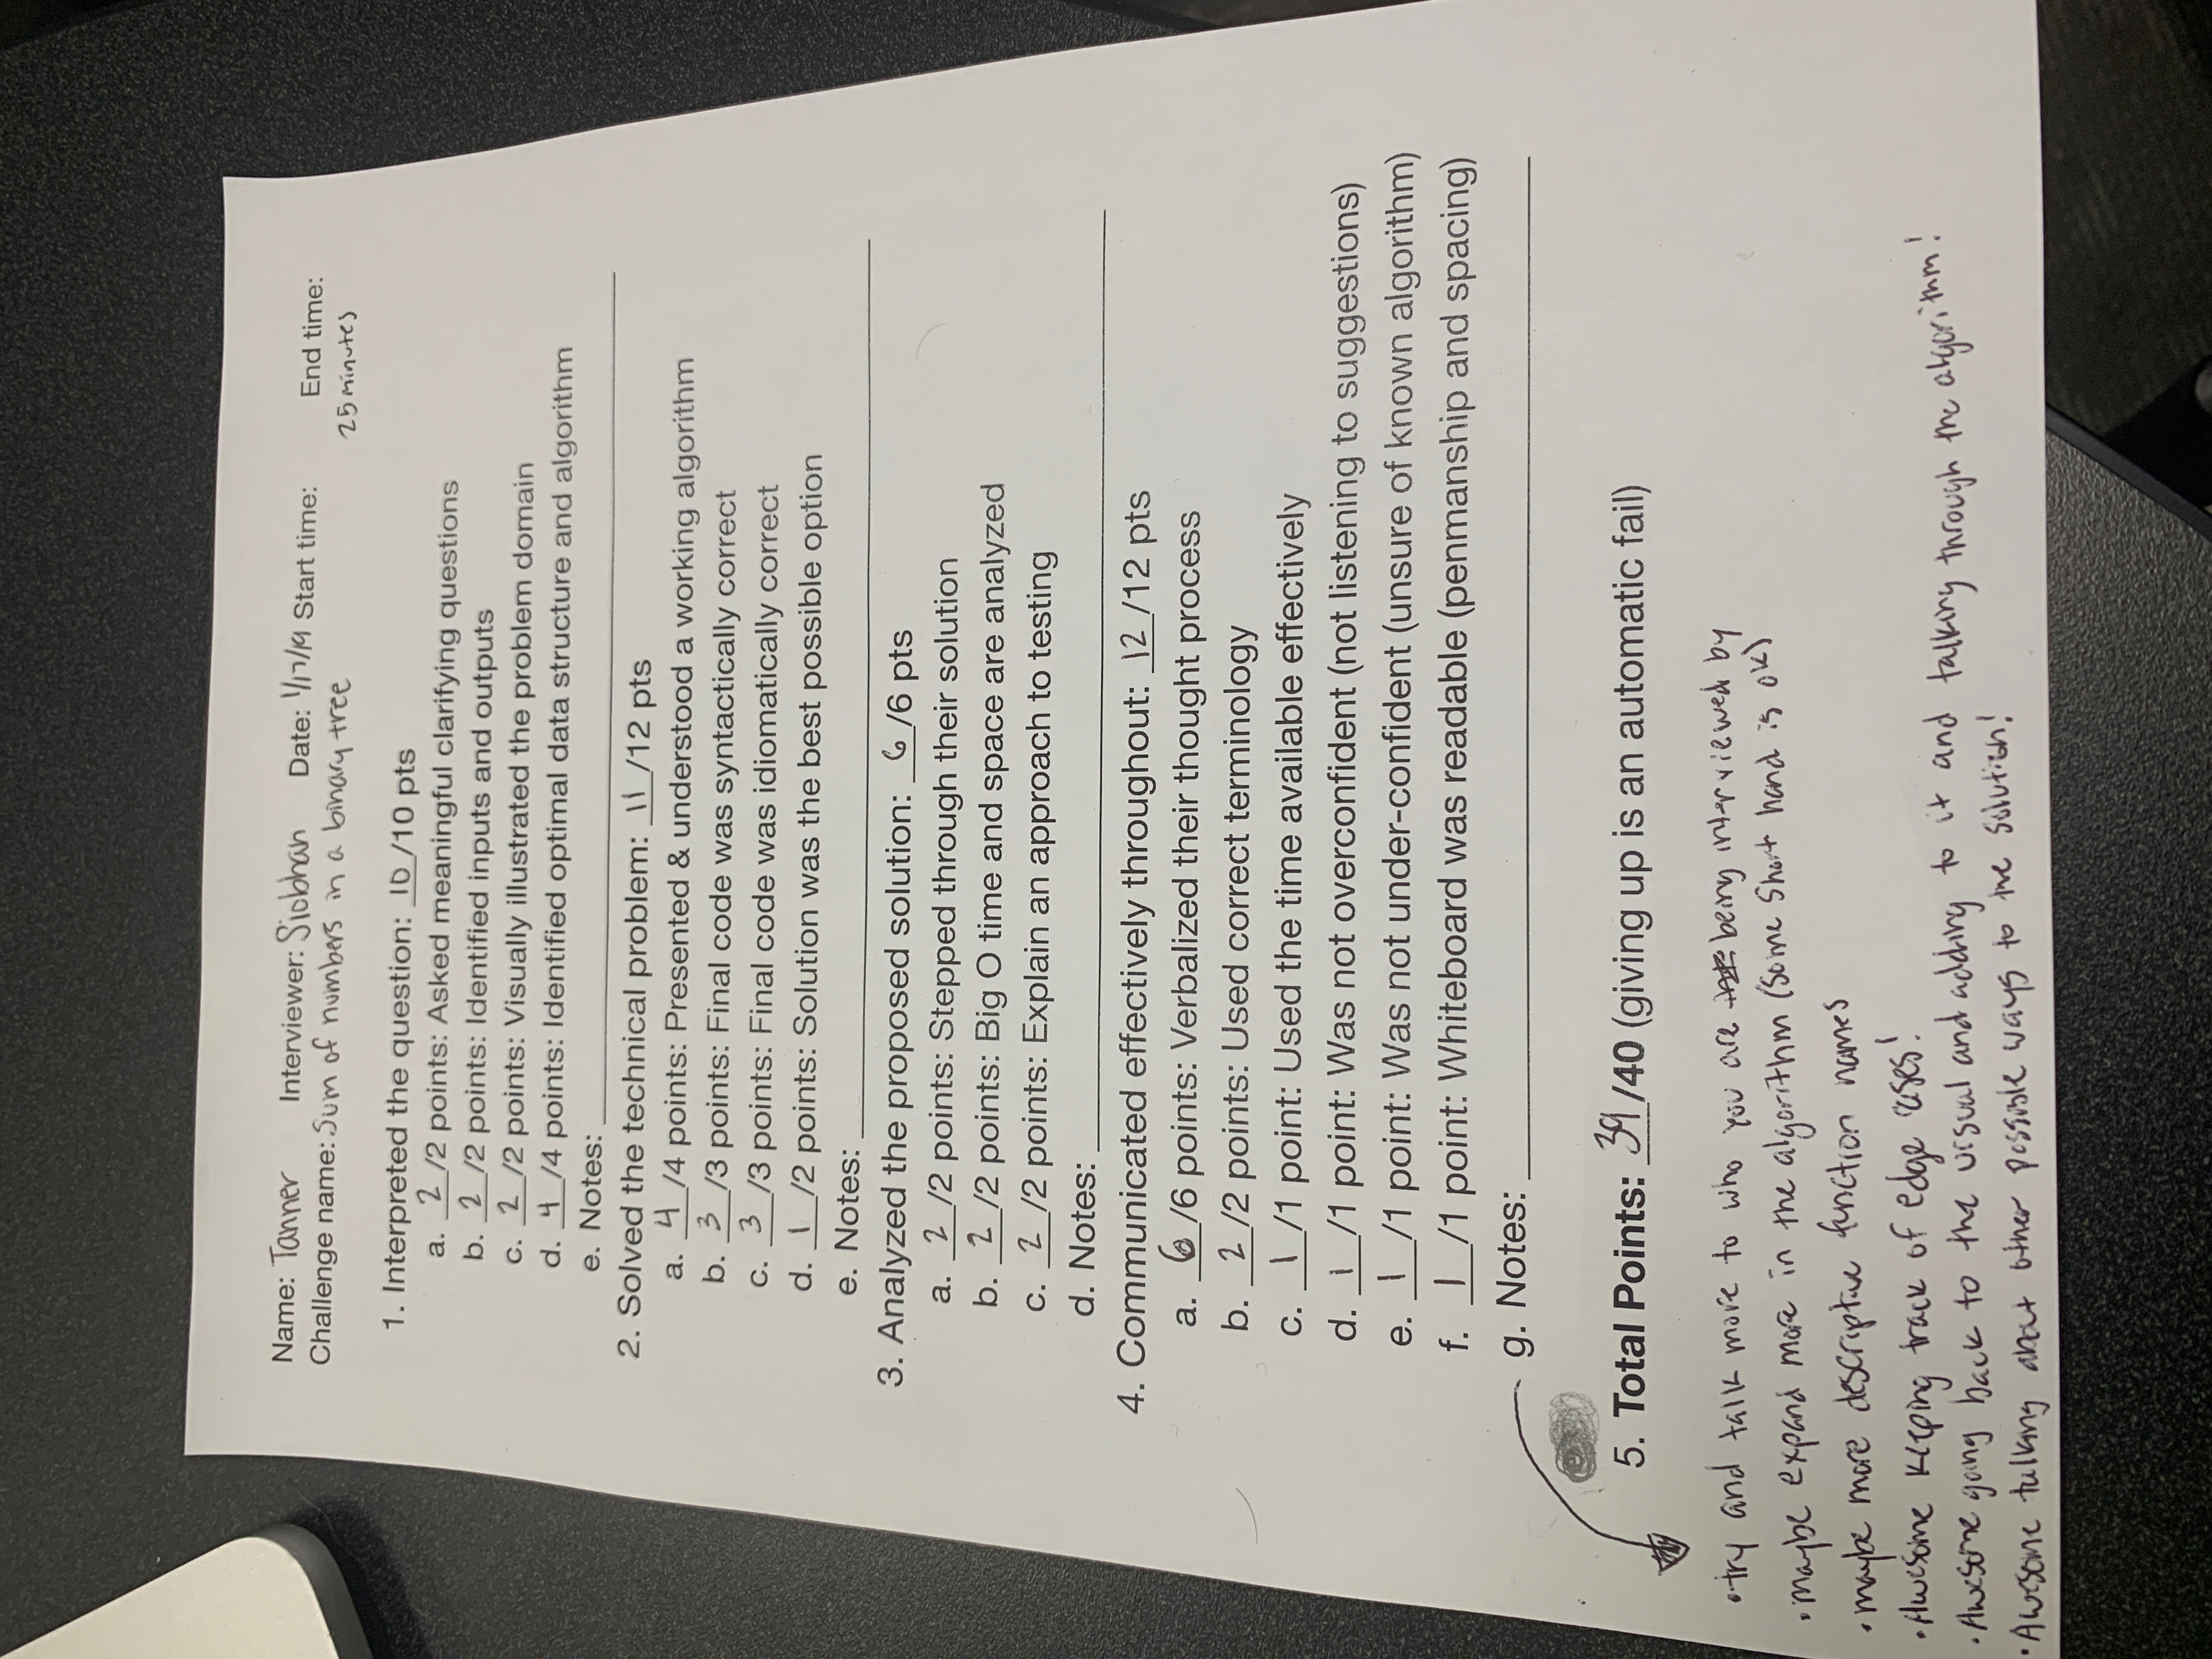 Name: Tanner Interviewer: Siobhan Date: 1/17/19 Start time: End time:
Challenge name: Sum of numbers in a binary tree 25 minutes
1. Interpreted the question: 10/10 pts
a. 2/2 points: Asked meaningful clarifying questions
b. 2/2 points: Identified inputs and outputs
c. 2/2 points: Visually illustrated the problem domain
d. 4/4 points: Identified optimal data structure and algorithm
e. Notes:
2. Solved the technical problem: 11/12 pts
a. 4/4 points: Presented & understood a working algorithm
b. 3/3 points: Final code was syntactically correct
c. 3/3 points: Final code was idiomatically correct
d. 1/2 points: Solution was the best possible option
e. Notes:
3. Analyzed the proposed solution: 6/6 pts
a. 2/2 points: Stepped through their solution
b. 2/2 points: Big O time and space are analyzed
c. 2/2 points: Explain an approach to testing
d. Notes:
4. Communicated effectively throughout: 12/12 pts
a. 6/6 points: Verbalized their thought process
b. 2/2 points: Used correct terminology
c. 1/1 point: Used the time available effectively
d. 1/1 point: Was not overconfident (not listening to suggestions)
e. 1/1 point: Was not under-confident (unsure of known algorithm)
f. 1/1 point: Whiteboard was readable (penmanship and spacing)
g. Notes:
5. Total Points: 39/40 (giving up is an automatic fail)
• try and talk more to who you are being interviewed by
• maybe expand more in the algorithm (some short hand is ok)
• maybe more descriptive function names
• Awesome keeping track of edge cases!
• Awesome going back to the visual and adding to it and talking through the algorithm!
• Awesome talking about other possible ways to the solution!